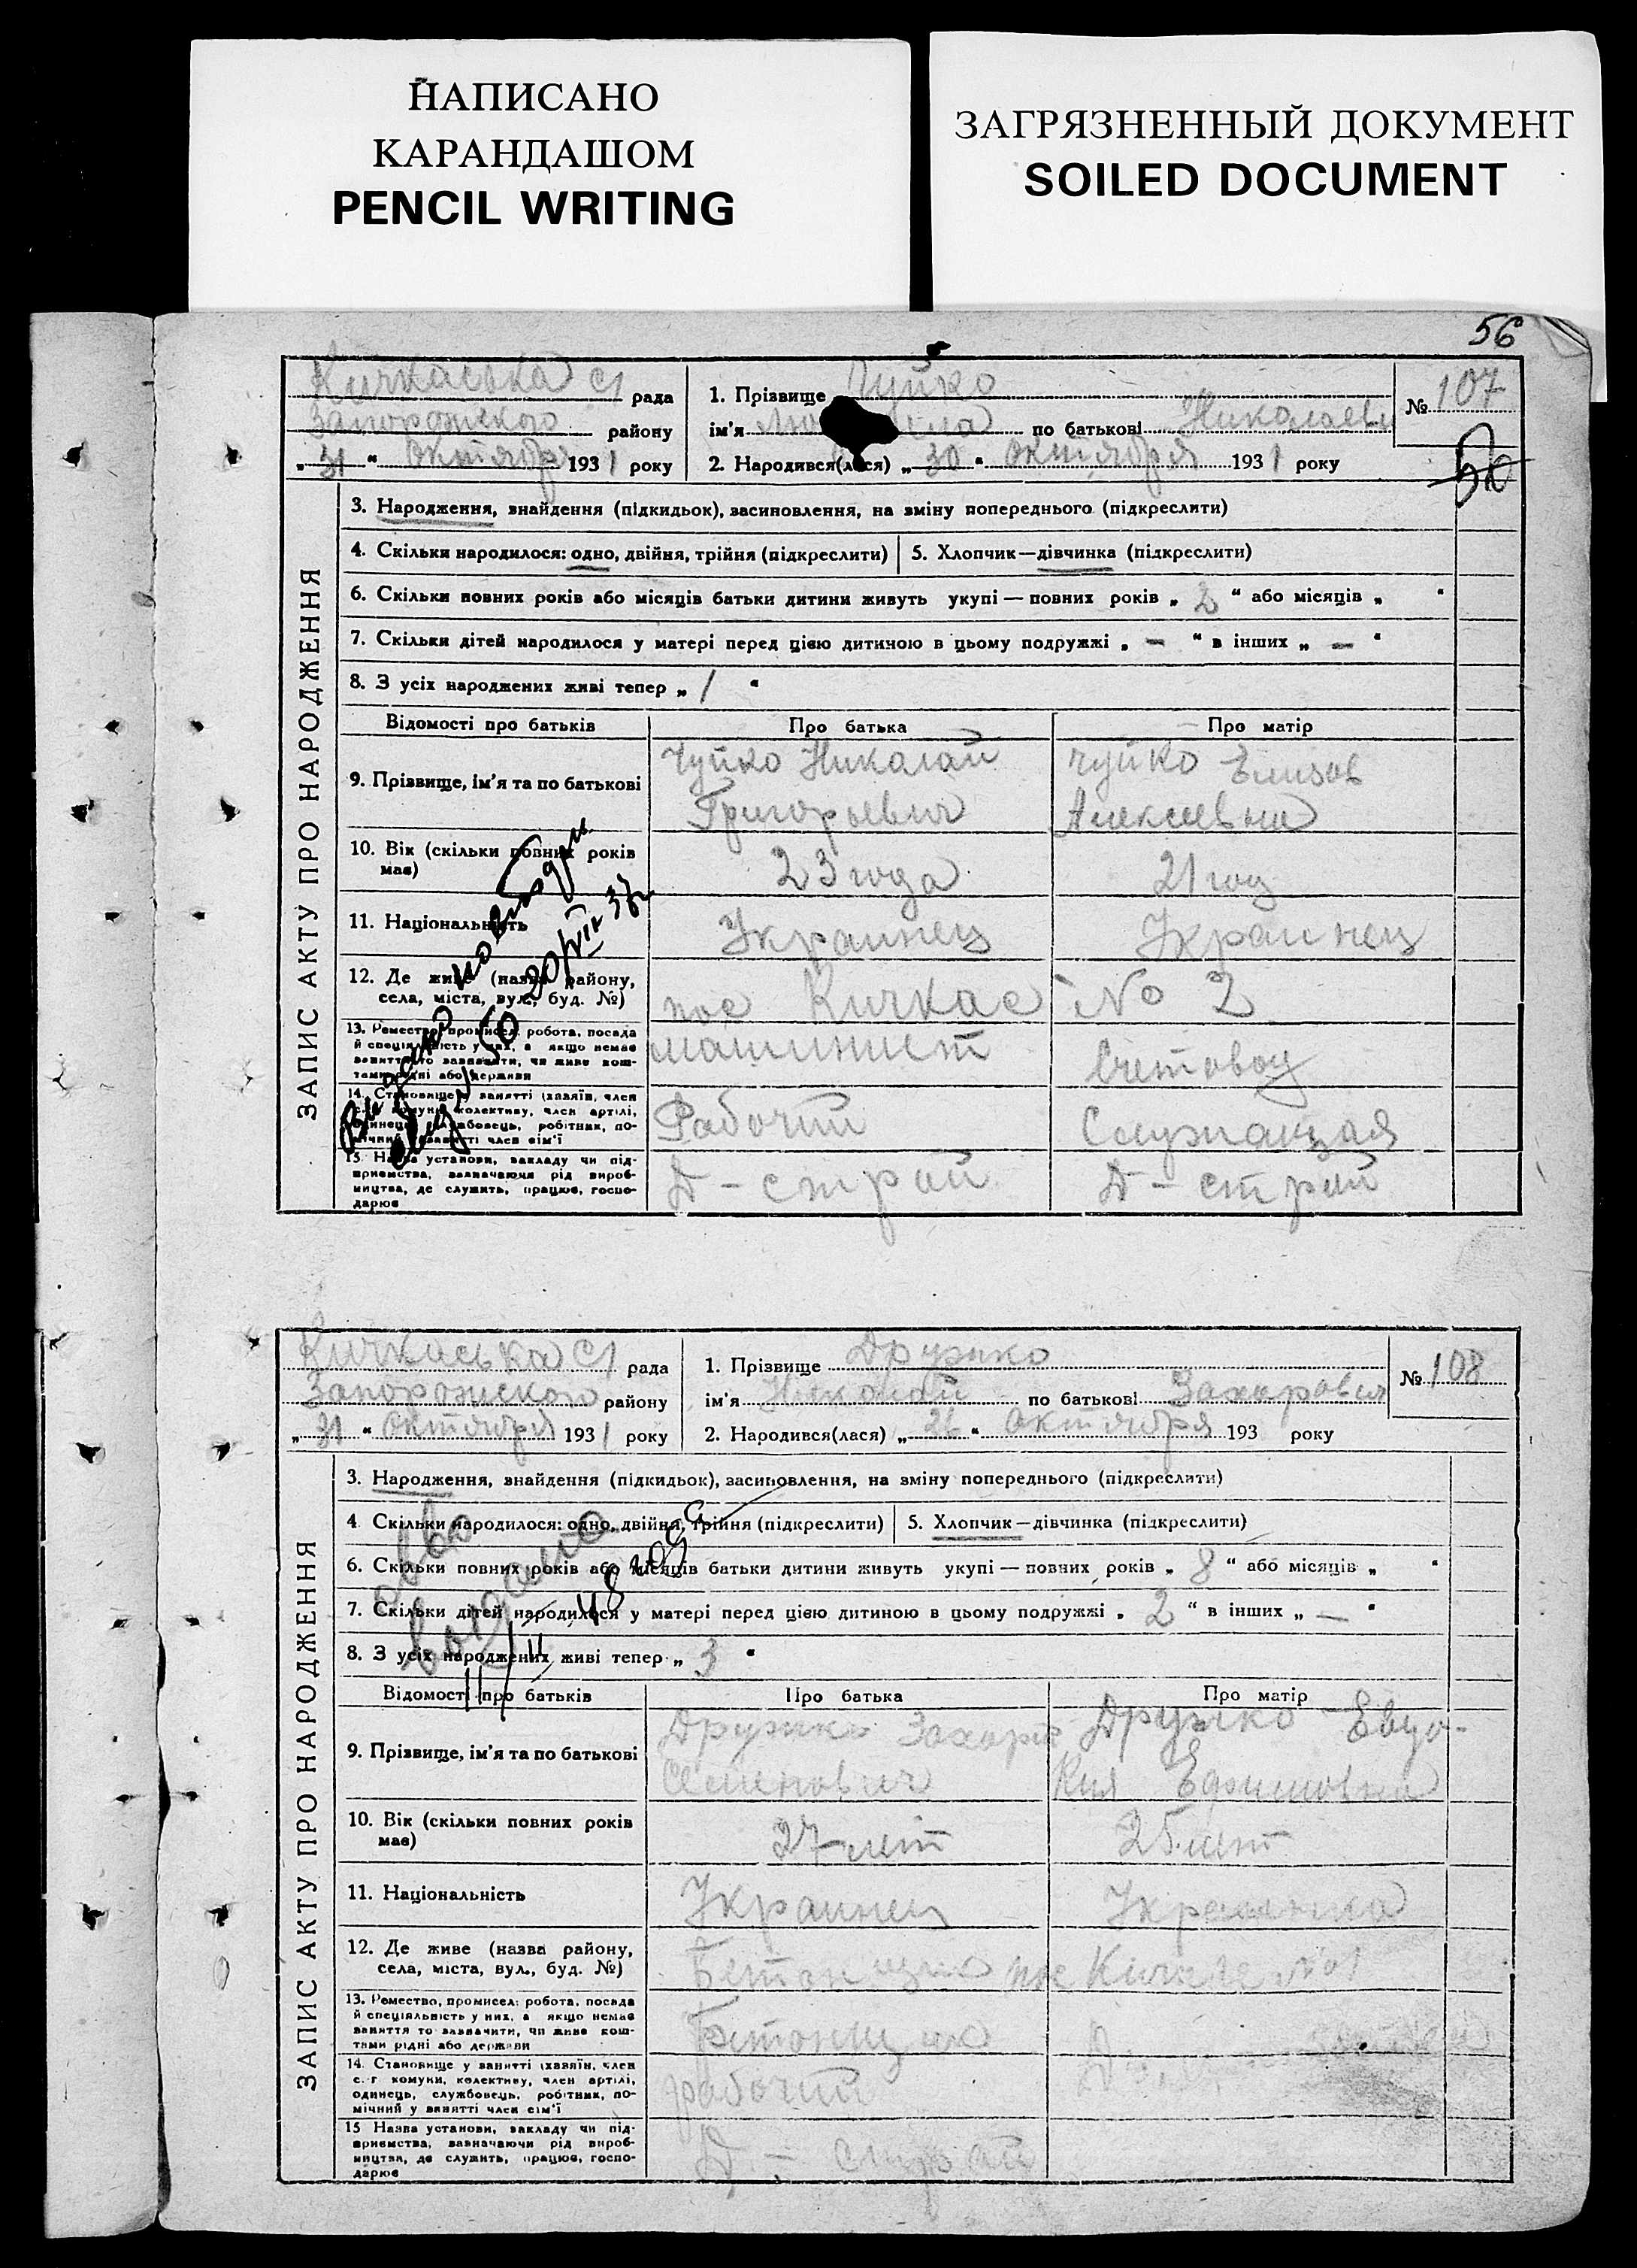 НАПИСАНО
КАРАНДАШОМ
PENCIL WRITING
ЗАГРЯЗНЕННЫЙ ДОКУМЕНТ
SOILED DOCUMENT
56
Кичкаська с/ рада
Запорожского району
„ 31 “ Октября 1931 року
1. Прізвище Чуйко
ім'я по батькові Николаевн
2. Народився(лася) „ 30 “ Октября 1931 року
№ 107
50
ЗАПИС АКТУ ПРО НАРОДЖЕННЯ
3. Народження, знайдення (підкидьок), засиновлення, на зміну попереднього (підкреслити)
4. Скільки народилося: одно, двійня, трійня (підкреслити)
5. Хлопчик—дівчинка (підкреслити)
6. Скільки повних років або місяців батьки дитини живуть укупі — повних років „ 2 “ або місяців „ “
7. Скільки дітей народилося у матері перед цією дитиною в цьому подружжі „ — “ в інших „ — “
8. З усіх народжених живі тепер „ 1 “
Відомості про батьків
Про батька
Про матір
9. Прізвище, ім'я та по батькові
Чуйко Николай
Григорьевич
Чуйко Елизав
Алексеевна
10. Вік (скільки повних років
має)
23 года
21 год
11. Національність
Украинец
Украинец
12. Де живе (назва району,
села, міста, вул., буд. №)
пос Кичкас № 2
13. Ремество, промисел: робота, посада
й спеціяльність у них, а якщо немає
заняття то зазначити, чи живе кош-
тами рідні або держави
машинист
Счетовод
14. Становище у занятті (хазяїн, член
с.-г. комуни, колективу, член артілі,
одинець, службовець, робітник, по-
мічний у занятті член сім'ї
Рабочий
Служащая
15. Назва установи, закладу чи під-
приємства, зазначаючи рід вироб-
ництва, де служить, працює, госпо-
дарює
Д-строй
Д-строй
Видано
50 20/VII 37
Кичкаська с/ рада
Запорожского району
„ 31 “ Октября 1931 року
1. Прізвище Дружко
ім'я Николай по батькові Захарович
2. Народився(лася) „ 26 “ Октября 193 року
№ 108
ЗАПИС АКТУ ПРО НАРОДЖЕННЯ
3. Народження, знайдення (підкидьок), засиновлення, на зміну попереднього (підкреслити)
4 Скільки народилося: одно, двійня, трійня (підкреслити)
5. Хлопчик—дівчинка (підкреслити)
6. Скільки повних років або місяців батьки дитини живуть укупі — повних років „ 8 “ або місяців „ “
7. Скільки дітей народилося у матері перед цією дитиною в цьому подружжі „ 2 “ в інших „ — “
8. З усіх народжених живі тепер „ 3 “
выдано
48 года
Відомості про батьків
Про батька
Про матір
9. Прізвище, ім'я та по батькові
Дружко Захарий
Семенович
Дружко Евдо-
кия Ефимовна
10. Вік (скільки повних років
має)
27 лет
25 лет
11. Національність
Украинец
Украинка
12. Де живе (назва району,
села, міста, вул., буд. №)
пос Кичкас №1
13. Ремество, промисел: робота, посада
й спеціяльність у них, а якщо немає
заняття то зазначити, чи живе кош-
тами рідні або держави
Бетонщик
14. Становище у занятті (хазяїн, член
с.-г. комуни, колективу, член артілі,
одинець, службовець, робітник, по-
мічний у занятті член сім'ї
рабочий
15 Назва установи, закладу чи під-
приємства, зазначаючи рід вироб-
ництва, де служить, працює, госпо-
дарює
Д - строй